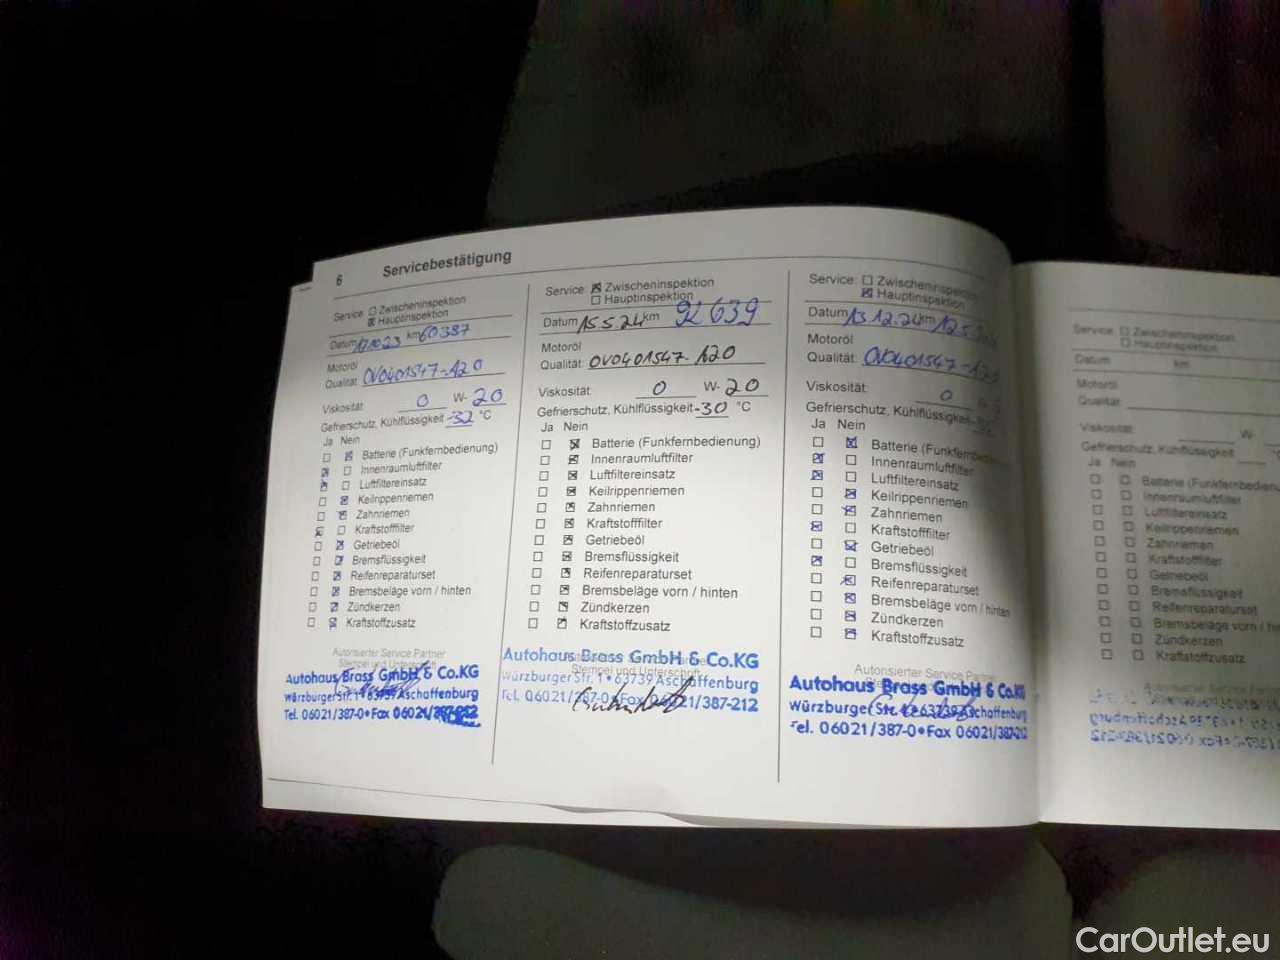 6 Servicebestätigung
Service: ☐ Zwischeninspektion
☒ Hauptinspektion
Datum km 60387
Motoröl
Qualität: OV0401547-A20
Viskosität 0 W- 20
Gefrierschutz, Kühlflüssigkeit -32 °C
Ja Nein
☐ ☒ Batterie (Funkfernbedienung)
☒ ☐ Innenraumluftfilter
☒ ☐ Luftfiltereinsatz
☐ ☒ Keilrippenriemen
☐ ☒ Zahnriemen
☒ ☐ Kraftstofffilter
☐ ☒ Getriebeöl
☐ ☒ Bremsflüssigkeit
☐ ☒ Reifenreparaturset
☐ ☒ Bremsbeläge vorn / hinten
☐ ☒ Zündkerzen
☐ ☒ Kraftstoffzusatz
Autorisierter Service Partner
Stempel und Unterschrift
Autohaus Brass GmbH & Co.KG
Würzburger Str. 1 • 63739 Aschaffenburg
Tel. 06021/387-0 • Fax 06021/387-212
Service: ☒ Zwischeninspektion
☐ Hauptinspektion
Datum 15.5.24 km 92639
Motoröl
Qualität: OV0401547-A20
Viskosität 0 W- 20
Gefrierschutz, Kühlflüssigkeit -30 °C
Ja Nein
☐ ☒ Batterie (Funkfernbedienung)
☐ ☒ Innenraumluftfilter
☐ ☒ Luftfiltereinsatz
☐ ☒ Keilrippenriemen
☐ ☒ Zahnriemen
☐ ☒ Kraftstofffilter
☐ ☒ Getriebeöl
☐ ☒ Bremsflüssigkeit
☐ ☒ Reifenreparaturset
☐ ☒ Bremsbeläge vorn / hinten
☐ ☒ Zündkerzen
☐ ☒ Kraftstoffzusatz
Stempel und Unterschrift
Autohaus Brass GmbH & Co.KG
Würzburger Str. 1 • 63739 Aschaffenburg
Tel. 06021/387-0 • Fax 06021/387-212
Service: ☐ Zwischeninspektion
☒ Hauptinspektion
Datum 13.12.24 km
Motoröl
Qualität: OV0401547-A20
Viskosität 0
Gefrierschutz, Kühlflüssigkeit
Ja Nein
☐ ☒ Batterie (Funkfernbedienung)
☒ ☐ Innenraumluftfilter
☒ ☐ Luftfiltereinsatz
☐ ☒ Keilrippenriemen
☐ ☒ Zahnriemen
☒ ☐ Kraftstofffilter
☐ ☒ Getriebeöl
☒ ☐ Bremsflüssigkeit
☐ ☒ Reifenreparaturset
☐ ☒ Bremsbeläge vorn / hinten
☐ ☒ Zündkerzen
☐ ☒ Kraftstoffzusatz
Autorisierter Service Partner
Autohaus Brass GmbH & Co.KG
Würzburger Str. 1 • 63739 Aschaffenburg
Tel. 06021/387-0 • Fax 06021/387-212
Service: ☐ Zwischeninspektion
☐ Hauptinspektion
Datum km
Motoröl
Qualität:
Viskosität W-
Gefrierschutz, Kühlflüssigkeit
Ja Nein
☐ ☐ Batterie (Funkfernbedienu
☐ ☐ Innenraumluftfilter
☐ ☐ Luftfiltereinsatz
☐ ☐ Keilrippenriemen
☐ ☐ Zahnriemen
☐ ☐ Kraftstofffilter
☐ ☐ Getriebeöl
☐ ☐ Bremsflüssigkeit
☐ ☐ Reifenreparaturset
☐ ☐ Bremsbeläge vorn / hi
☐ ☐ Zündkerzen
☐ ☐ Kraftstoffzusatz
CarOutlet.eu